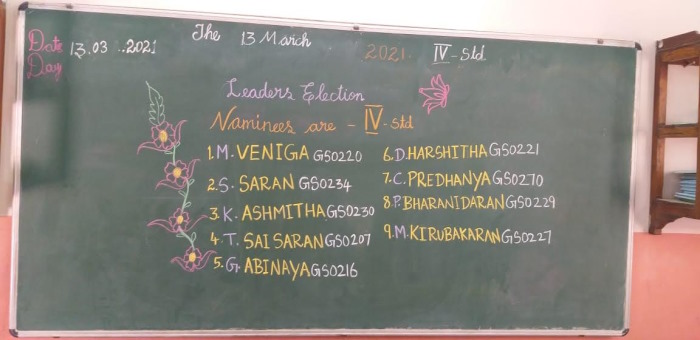 Date 13.03..2021 The 13 March 2021. IV-Std
Day
Leaders Election
Naminees are - IV-std
1.M. VENIGA GS0220
2.S. SARAN GS0234
3.K. ASHMITHA GS0230
4.T. SAI SARAN GS0207
5.G. ABINAYA GS0216
6.D.HARSHITHA GS0221
7.C.PREDHANYA GS0270
8.P.BHARANIDARAN GS0229
9.M.KIRUBAKARAN GS0227